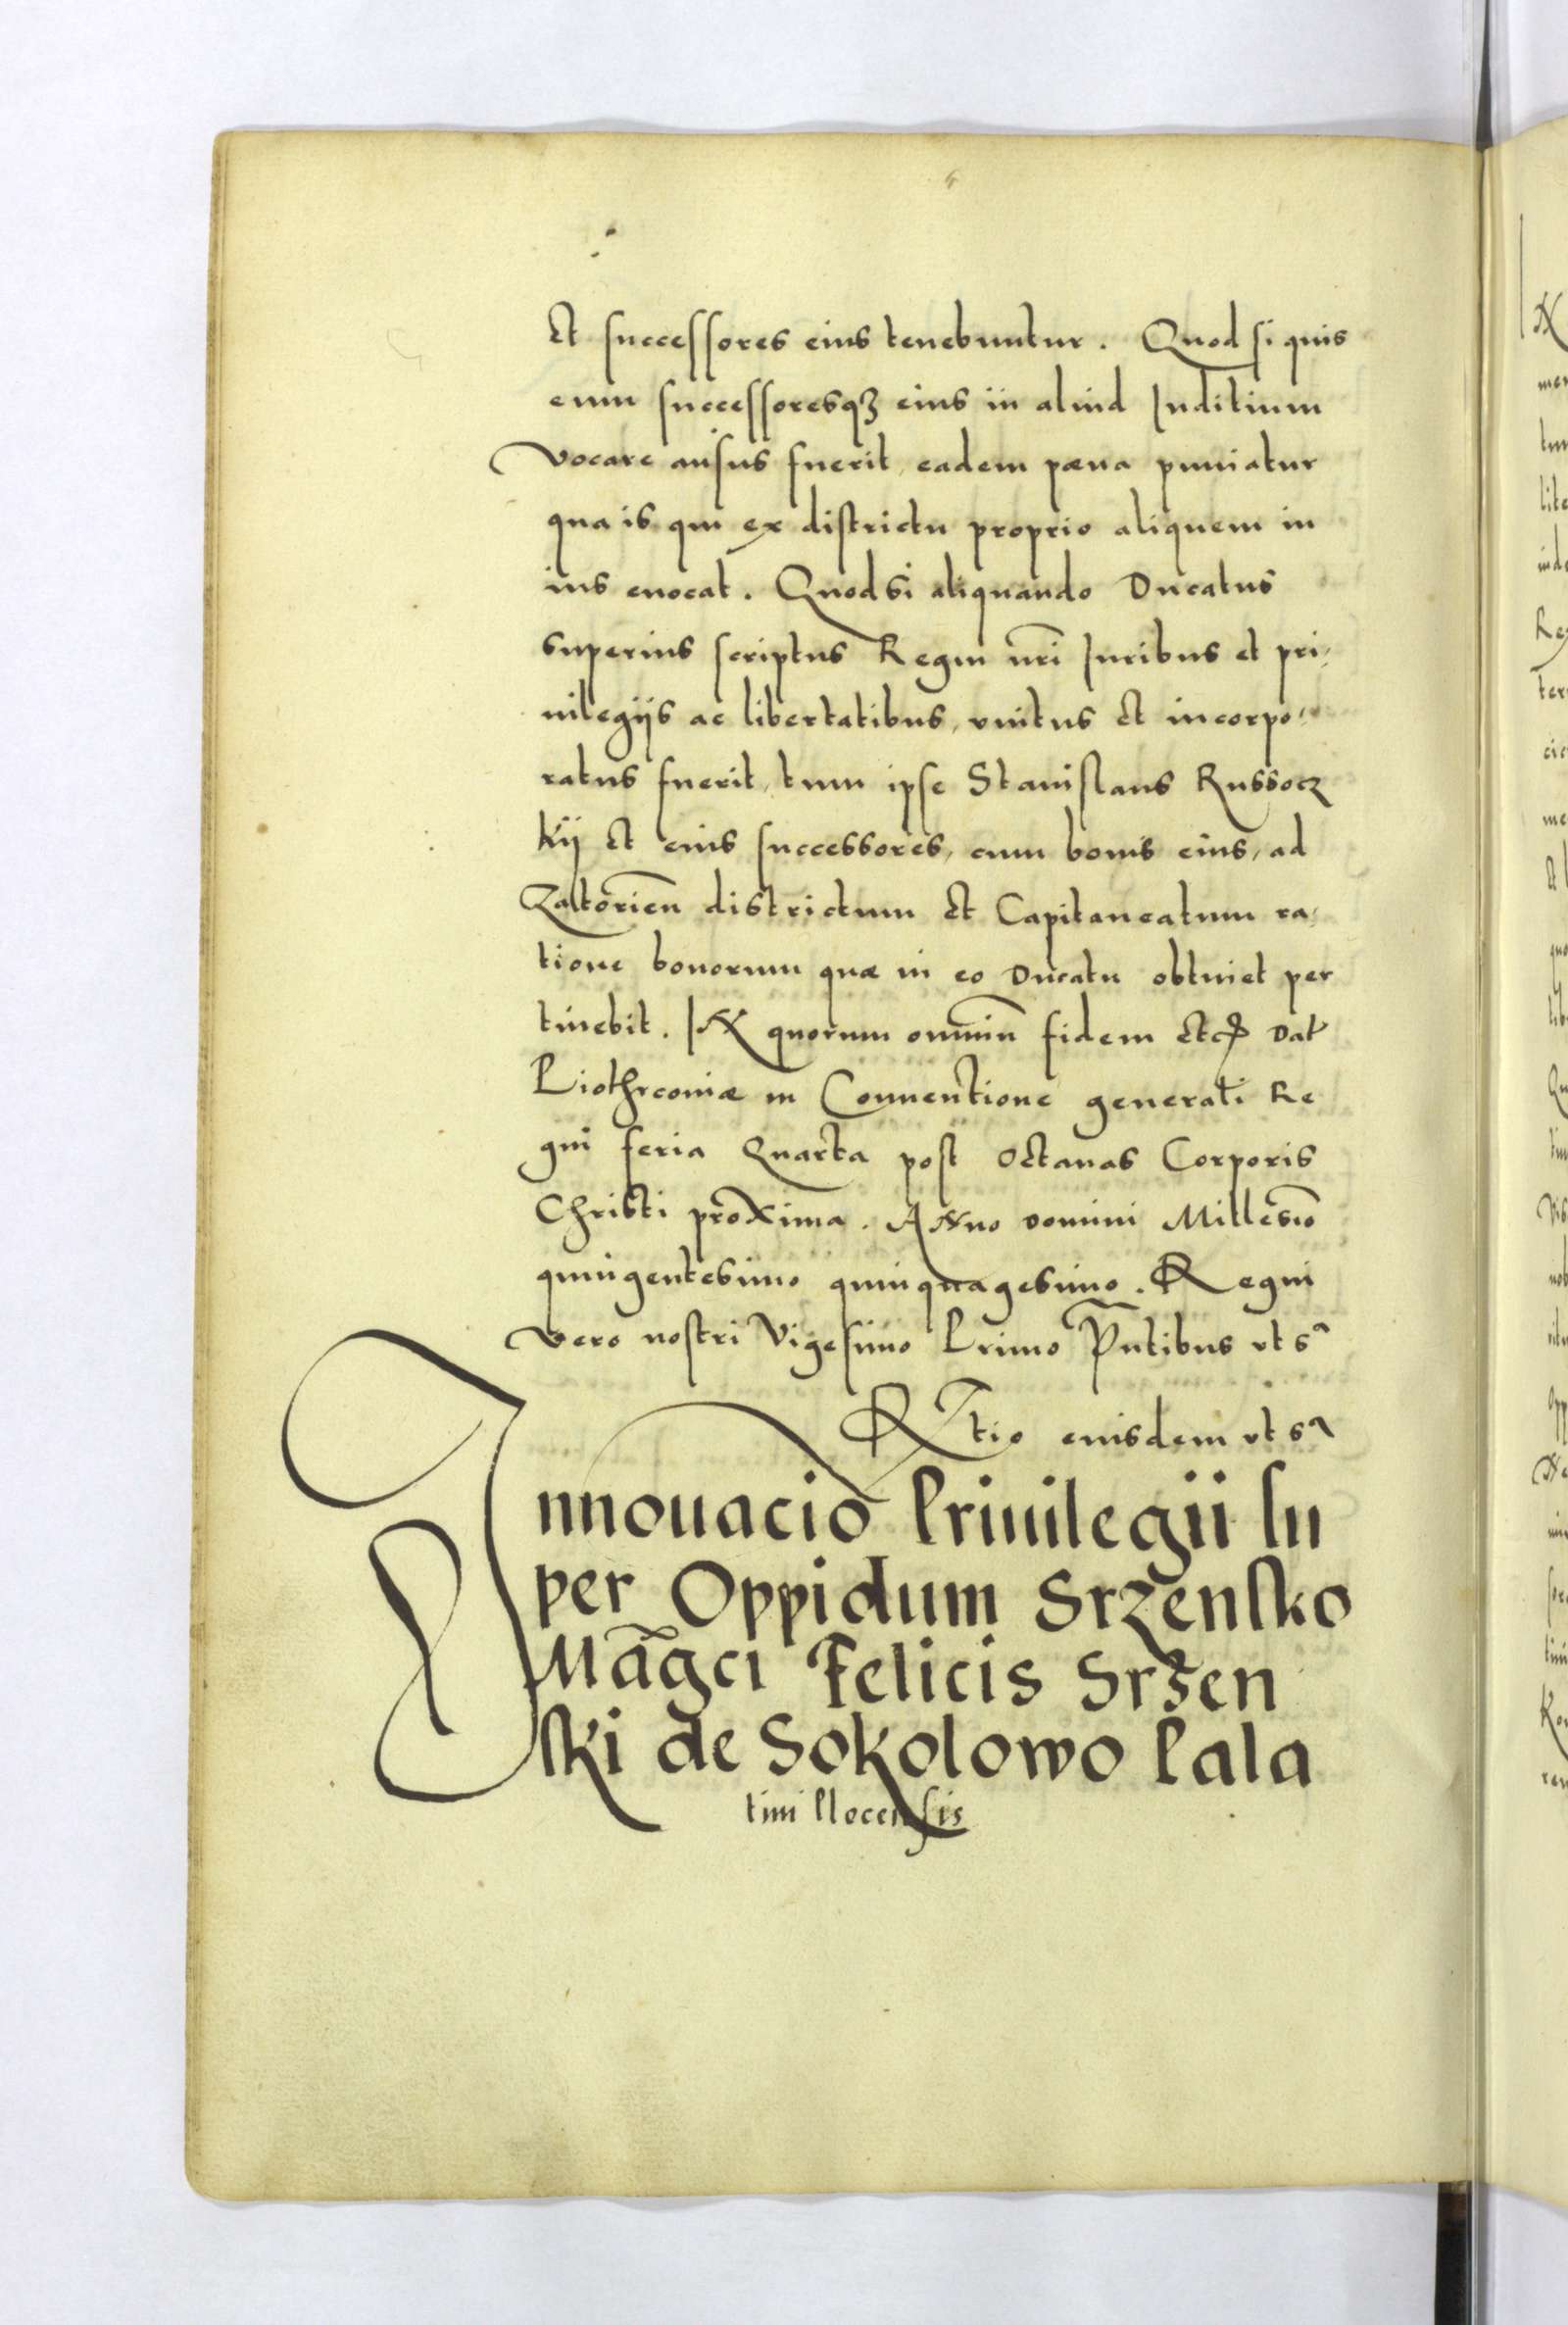 Et successores eius tenebuntur. Quod si quis
eum successoresqz eius in aliud Iuditium
vocare ausus fuerit, eadem pæna puniatur
qua is qui ex districtu proprio aliquem in
ius euocat. Quod si aliquando Ducatus
superius scriptus Regni nr̃i Iuribus et pri-
uilegijs ac libertatibus, vnitus Et incorpo-
ratus fuerit, tum ipse Stanislaus Russocz
kij Et eius successores, cum bonis eius, ad
Zatorieñ districtum Et Capitaneatum ra-
tione bonorum quæ in eo Ducatu obtinet per
tinebit. IN quorum omniũ fidem Etc Dat̃
Piothrconiæ in Conuentione generali Re
gni feria Quarta post Octauas Corporis
Christi proxima. ANno domini Millesĩo
quingentesimo quinquagesimo. Regni
vero nostri Vigesimo Primo Pñtibus vt sᵃ
Rtio eiusdem vt sᵃ
Innouacio Priuilegii su
per Oppidum Srzensko
Mãgci Felicis Srzen
ski de Sokolowo Pala
tini Plocensis